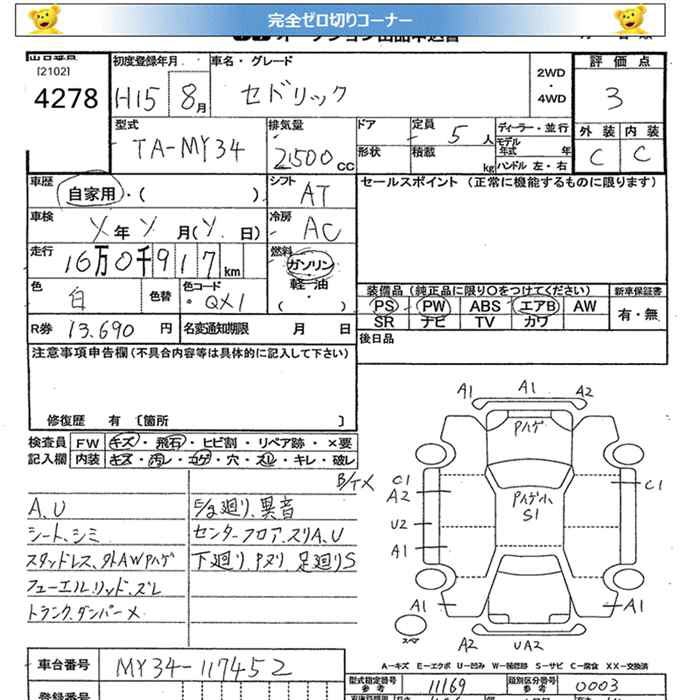 完全ゼロ切りコーナー
[2102]
4278
初度登録年月
H15 8月
車名・グレード
セドリック
2WD
・
4WD
評価点
3
外装 内装
C C
型式
TA-MY34
排気量
2500 CC
ドア
形状
定員 5人
積載 kg
ディーラー・並行
モデル年式 年
ハンドル 左・右
車歴
自家用・( )
シフト AT
セールスポイント (正常に機能するものに限ります)
車検
年 月( 日)
冷房 AC
走行
16万0千917km
燃料
ガソリン
軽・油
( )
色
白
色替
色コード
・QX1
装備品(純正品に限り○をつけてください)
新車保証書
PS PW ABS エアB AW
SR ナビ TV カワ
有・無
R券 13.690 円
名変通知期限 月 日
後日品
注意事項申告欄(不具合内容等は具体的に記入して下さい)
修復歴 有 〔箇所 〕
検査員
記入欄
FW キズ・飛石・ヒビ割・リペア跡・×要
内装 キズ・汚レ・コゲ・穴・スレ・キレ・破レ
A、U
シート、シミ
スタッドレス、外AWPハゲ
フューエル、リッド、ズレ
トランク、ダンパー×
異音
センターフロア、スリA、U
下廻り、Pヌリ、足廻りS
A1 A1 A2
Pハゲ
C1
A2
C1
Pハゲ小
S1
U2
A1
A1 A1
スペア
A2 UA2
A-キズ E-エクボ U-凹み W-補修跡 S-サビ C-腐食 XX-交換済
車台番号
MY34-117452
型式指定番号
参考
11169
類別区分番号
参考
0003
登録番号